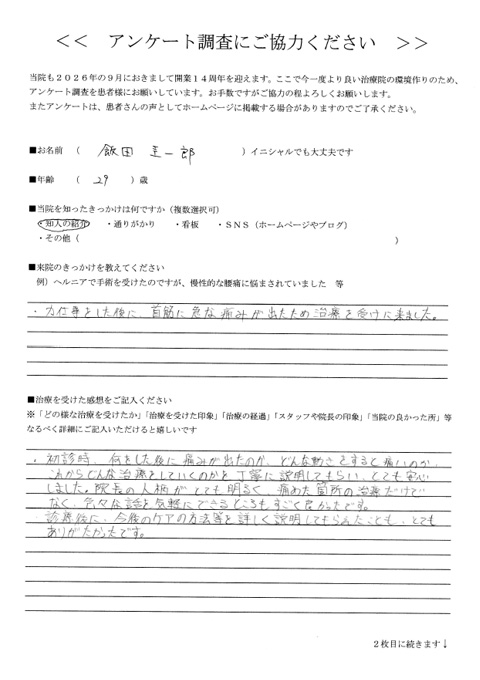 << アンケート調査にご協力ください >>
当院も2026年の9月におきまして開業14周年を迎えます。ここで今一度より良い治療院の環境作りのため、
アンケート調査を患者様にお願いしています。お手数ですがご協力の程よろしくお願いします。
またアンケートは、患者さんの声としてホームページに掲載する場合がありますのでご了承ください。
■お名前 ( 飯田 圭一郎 )イニシャルでも大丈夫です
■年齢 ( 29 )歳
■当院を知ったきっかけは何ですか(複数選択可)
・知人の紹介 ・通りがかり ・看板 ・SNS(ホームページやブログ)
・その他( )
■来院のきっかけを教えてください
例)ヘルニアで手術を受けたのですが、慢性的な腰痛に悩まされていました 等
・力仕事をした後に、首筋に急な痛みが出たため治療を受けに来ました。
■治療を受けた感想をご記入ください
※「どの様な治療を受けたか」「治療を受けた印象」「治療の経過」「スタッフや院長の印象」「当院の良かった所」等
なるべく詳細にご記入いただけると嬉しいです
・初診時、何をした後に痛みが出たのか、どんな動きをすると痛いのか、
これからどんな治療をしていくのかを丁寧に説明してもらい、とても安心
しました。院長の人柄がとても明るく、痛めた箇所の治療だけで
なく、色々な話を気軽にできるところもすごく良かったです。
診療後に、今後のケアの方法等を詳しく説明してもらえたことも、とても
ありがたかったです。
2枚目に続きます↓